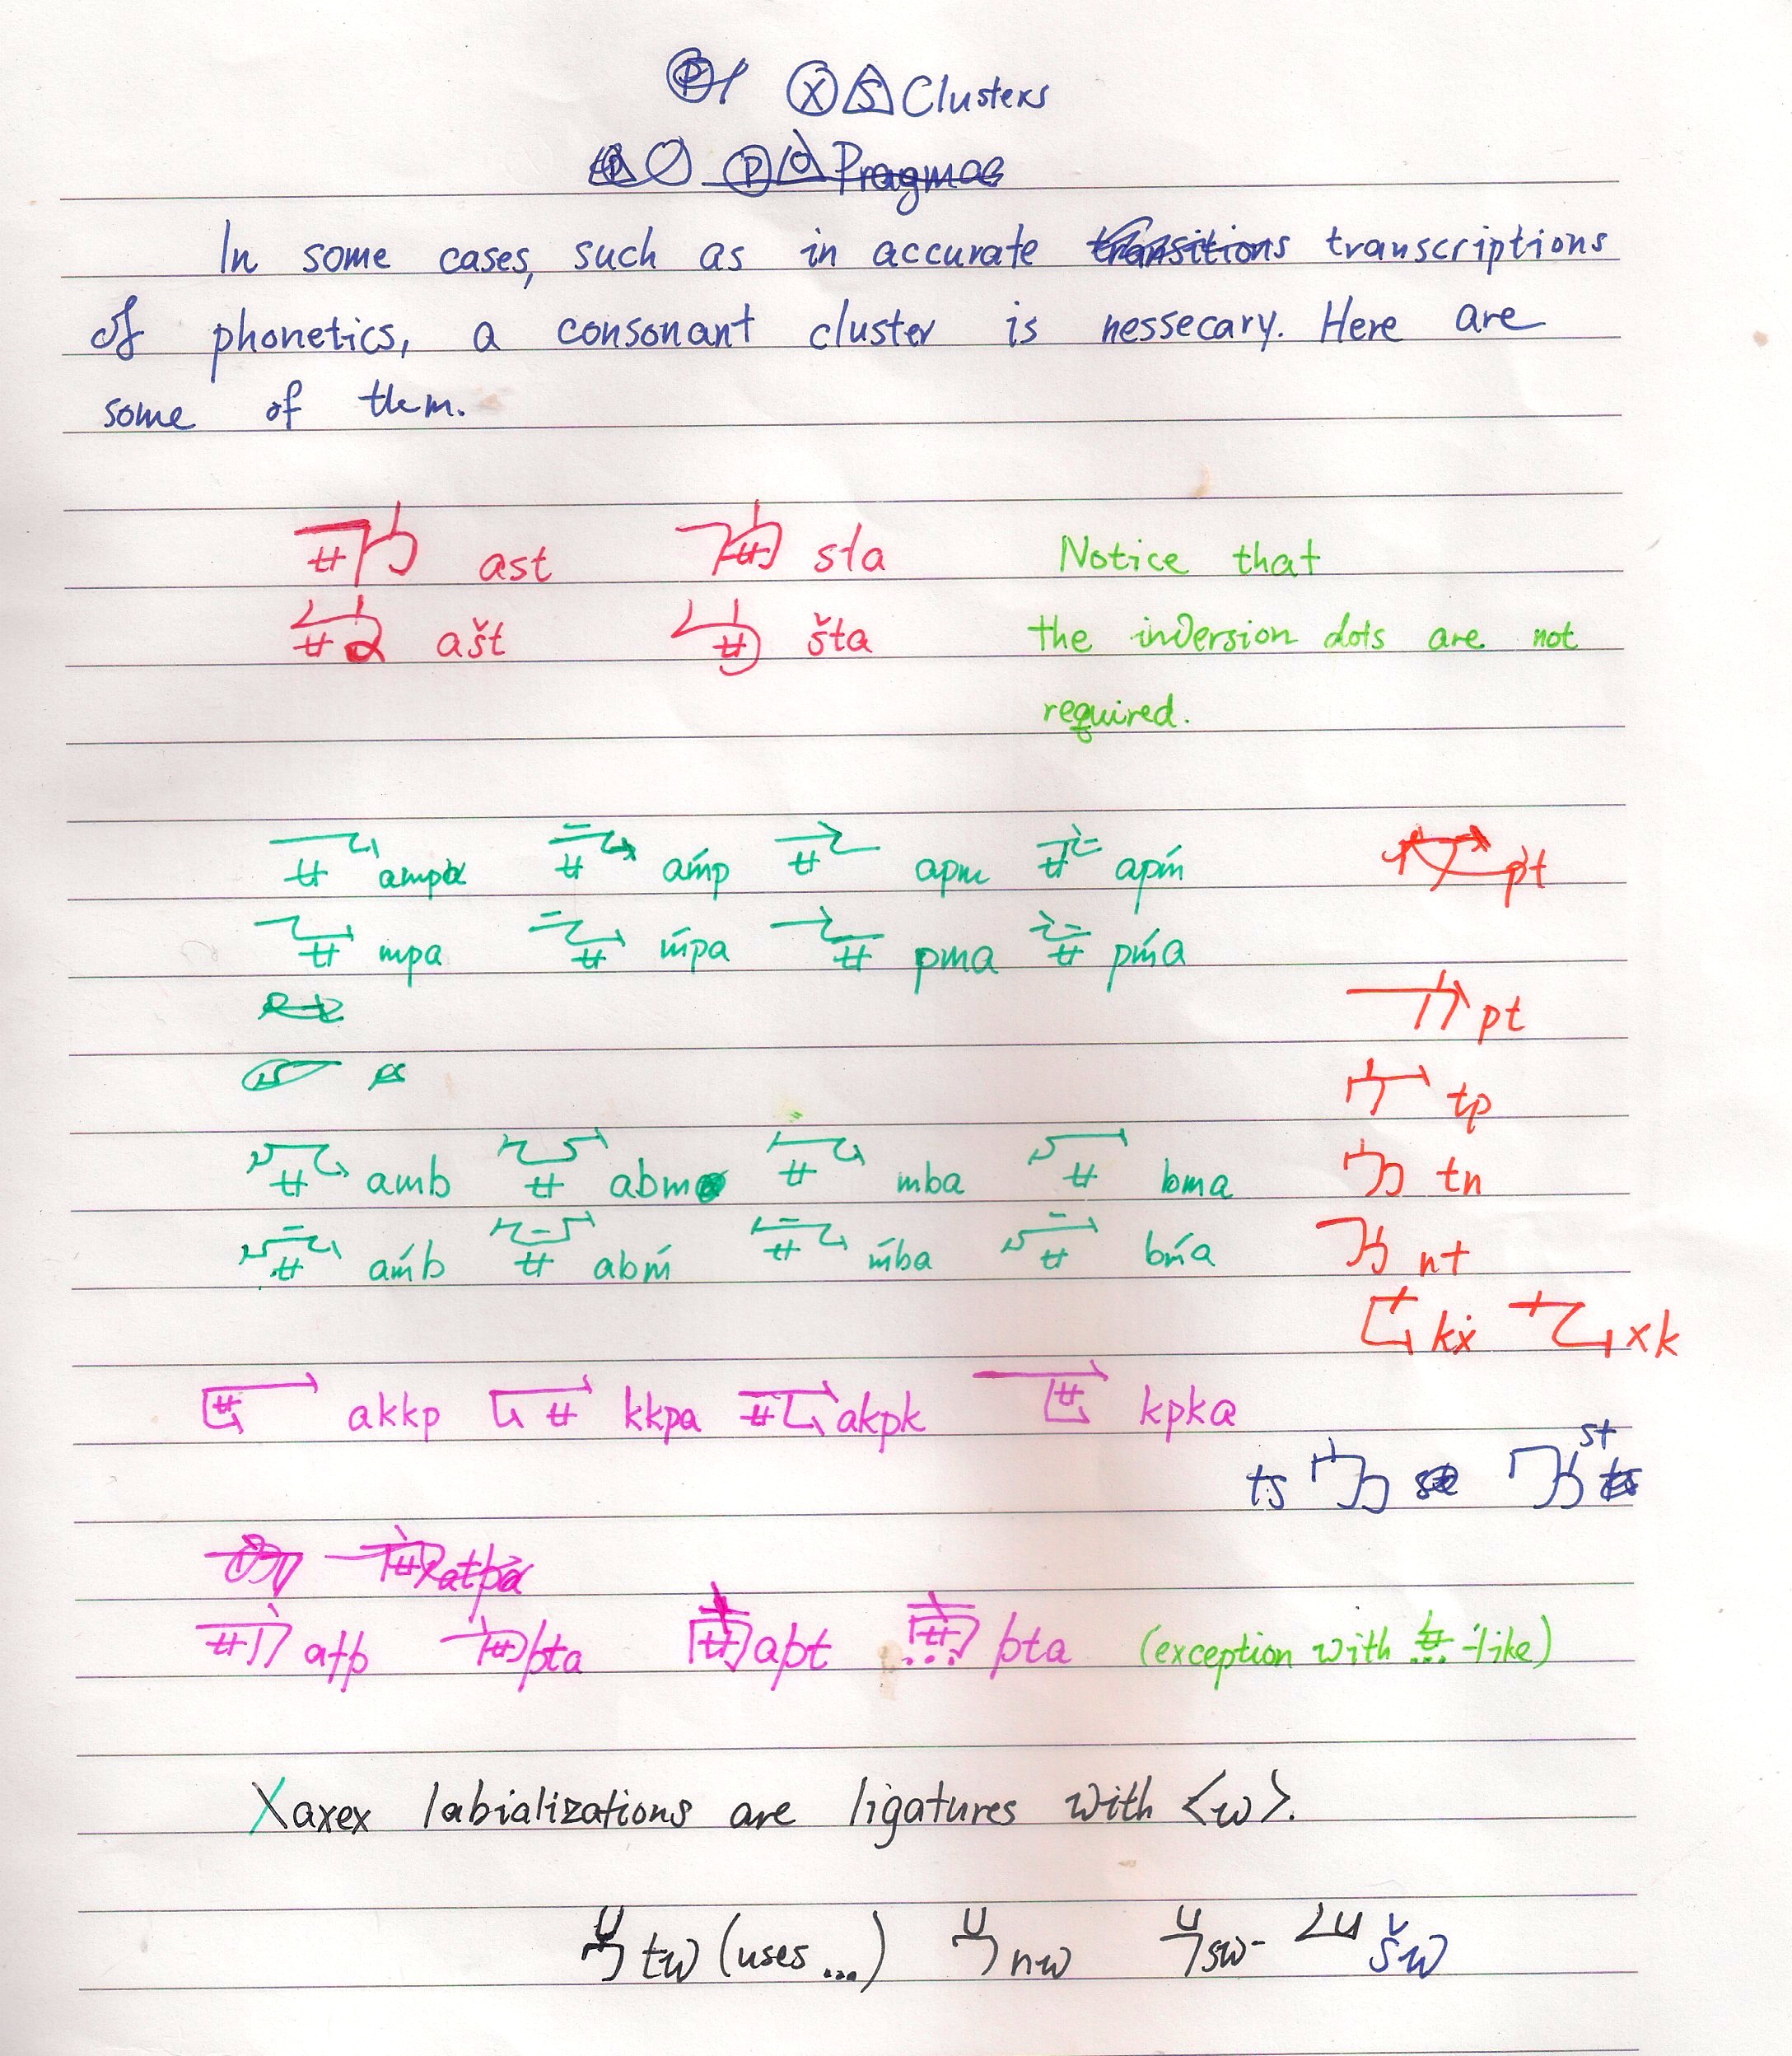 Clusters
Pragmac
In some cases, such as in accurate transitions transcriptions
of phonetics, a consonant cluster is nessecary. Here are
some of them.
ast sta Notice that
ašt šta the inversion dots are not
required.
ampa aḿp apm apḿ pt
mpa ḿpa pma pḿa
pt
tp
amb abm mba bma tn
aḿb abḿ ḿba bḿa nt
kẋ xk
akkp kkpa akpk kpka
st
ts
atpa
atp pta apt pta (exception with -like)
Xaxex labializations are ligatures with <w>.
tw (uses ...) nw sw- šw